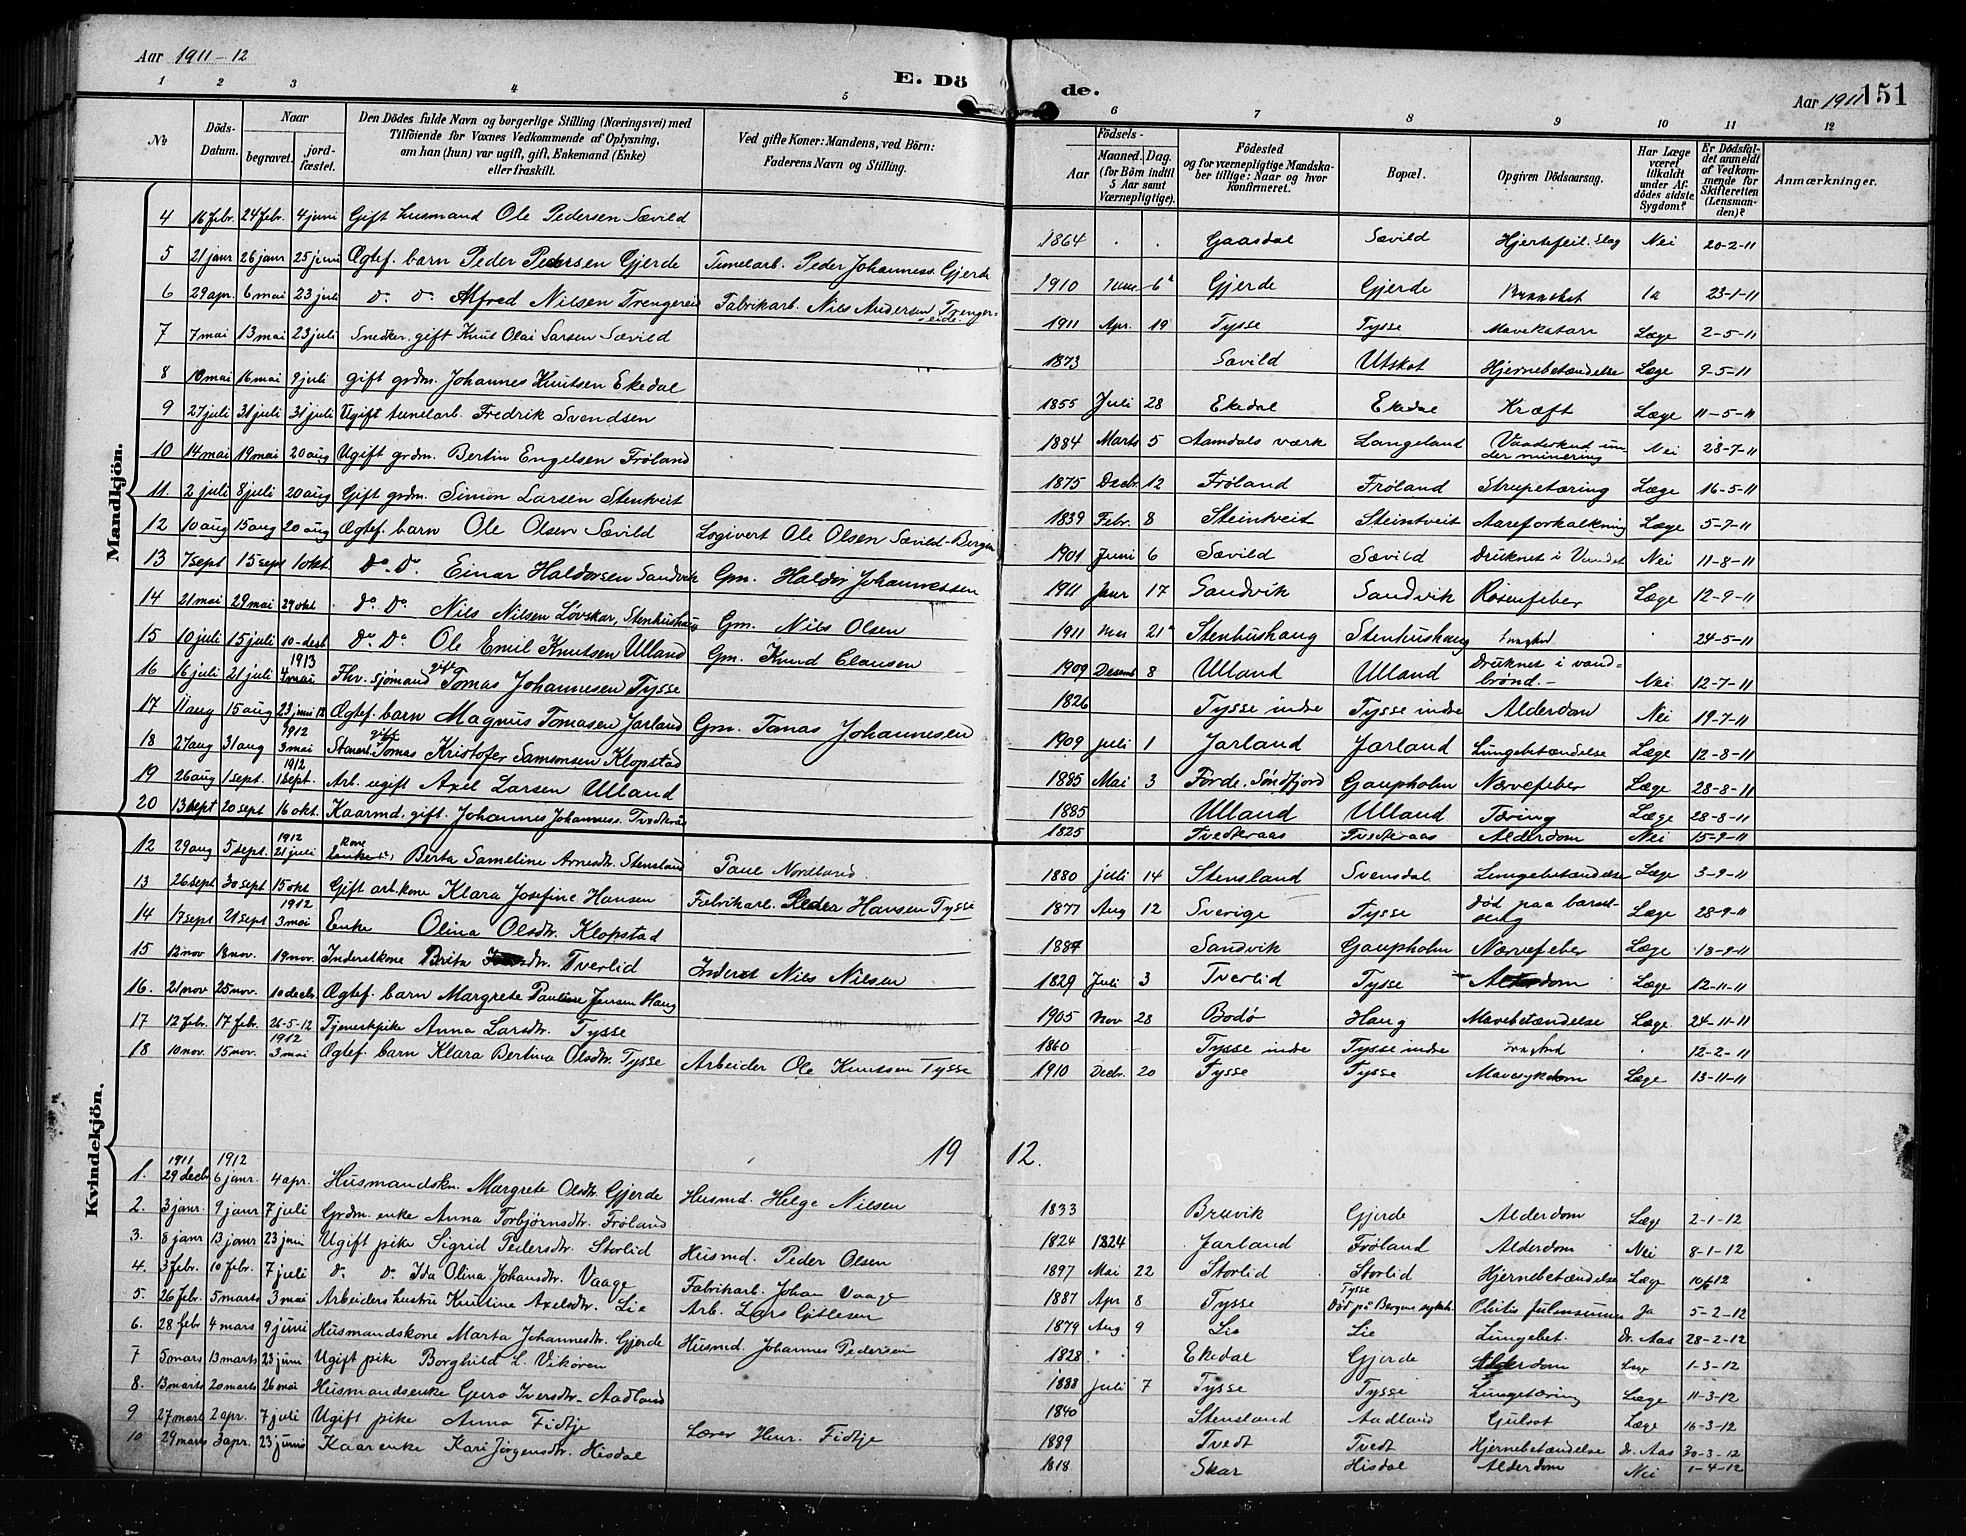 Aar 1911-12
E. Dö
de.
Aar 1911
151
1 2 3 4 5 6 7 8 9 10 11 12
№
Döds-Datum.
Naar
begravet.
jord-fæstet.
Den Dödes fulde Navn og borgerlige Stilling (Næringsvei) med
Tilföiende for Voxnes Vedkommende af Oplysning,
om han (hun) var ugift, gift, Enkemand (Enke)
eller fraskilt.
Ved gifte Koner: Mandens, ved Börn:
Faderens Navn og Stilling.
Födsels-
Aar
Maaned. Dag.
(for Börn indtil
5 Aar samt
Værnepligtige).
Födested
og for værnepligtige Mandska-
ber tillige: Naar og hvor
Konfirmeret.
Bopæl.
Opgiven Dödsaarsag.
Har Læge
været
tilkaldt
under Af-
dödes sidste
Sygdom?
Er Dödsfal-
det anmeldt
af Vedkom-
mende for
Skifteretten
(Lensman-
den)?
Anmærkninger.
Mandkjön.
4 16 febr. 24 febr. 4 juni Gift husmand Ole Pedersen Sævild 1864 Gaasdal Sævild Hjertefeil. Slag Nei 20-2-11
5 21 janr 26 janr 25 juni Ægtef. barn Peder Pedersen Gjerde Tunelarb. Peder Johanness. Gjerde 1910 6 Gjerde Gjerde Ja 23-1-11
6 29 apr. 6 mai 23 juli do do Alfred Nilsen Trengereid Fabrikarb. Nils Andersen Trenger-eide. 1911 Apr. 19 Tysse Tysse Mavekatarr Læge 2-5-11
7 7 mai 13 mai 23 juli Snedker, gift Knut Olai Larsen Sævild 1873 Sævild Utskot Hjernebetændelse Læge 9-5-11
8 10 mai 16 mai 9 juli gift grdm. Johannes Knutsen Ekedal 1855 Juli 28 Ekedal Ekedal Kræft Læge 11-5-11
9 27 juli 31 juli 31 juli Ugift tunelarb. Fredrik Svendsen 1884 Marts 5 Aamdals værk Langeland Vaadeskud un-der minering Nei 28-7-11
10 14 mai 19 mai 20 aug Ugift grdm. Bertin Engelsen Frøland 1875 Decbr 12 Frøland Frøland Strupetæring Læge 16-5-11
11. 2 juli 8 juli 20 aug Gift grdm. Simon Larsen Stenkveit 1839 Febr. 8 Steintveit Steintveit Aareforkalkning Læge 5-7-11
12 10 aug 15 aug 20 aug Ægtef. barn Ole Olsen Sævild Logivert Ole Olsen Sævild-Bergen 1901 Juni 6 Sævild Sævild Druknet i Vandet Nei 11-8-11
13 7 sept 15 sept 1 okt do. do. Einar Haldorsen Sandvik Gm. Haldor Johannessen 1911 Janr 17 Sandvik Sandvik Rosenfeber Læge 12-9-11
14 21 mai 29 mai 29 okt do. do. Nils Nilsen Løvskar, Stenhushaug Gm. Nils Olsen 1911 Mai 21 Stenhushaug Stenhushaug 24-5-11
15 10 juli 15 juli 10-decb do do Ole Emil Knutsen Ulland Gm. Knud Clausen 1909 Desemb 8 Ulland Ulland Druknet i vand-brønd.- Nei 12-7-11
16 16 juli 21 juli 1913 4 mai Fhv. sjømand gift Tomas Johannesen Tysse 1826 Tysse indre Tysse indre Alderdom Nei 19-7-11
17 11 aug 15 aug 23 juni 12 Ægtef. barn Magnus Tomasen Jarland Gm. Tomas Johannesen 1909 juli 1 Jarland Jarland Lungebetændelse Læge 12-8-11
18 27 aug 31 aug 1912 3 mai gift Tomas Kristofer Samsonsen Klopstad 1885 Mai 3 Førde, Søndfjord Gaupholm Nervefeber Læge 28-8-11
19 26 aug 1 sept. 1912 1 sept. Arb. ugift Axel Larsen Ulland 1885 Ulland Ulland Tæring Læge 28-8-11
20 13 sept 20 sept 16 okt. Kaarmd. gift. Johannes Johanness. Tvedteraas 1825 Tvedteraas Tvedteraas Alderdom Nei 15-9-11
Kvindekjön.
12 29 aug 5 sept. 1912 21 juli Kone Berta Sameline Arnesdtr. Stensland Paul Nordland. 1880 juli 14 Stensland Svensdal Lungebetændelse Læge 3-9-11
13 26 sept 30 sept 15 okt Gift arb. kone Klara Josefine Hansen Fabrikarb. Peder Hansen Tysse 1877 Aug 12 Sverige Tysse død paa barsel-seng Læge 28-9-11
14 17 sept 21 sept 1912 3 mai Enke Olina Olsdtr. Klopstad 1887 Sandvik Gaupholm Nervefeber Læge 18-9-11
15 12 nov 18 nov. 19 nov. Inderstkone Brita Tverlid Inderst Nils Nilsen 1829 Juli 3 Tverlid Tysse Alderdom Læge 12-11-11
16. 21 nov 25 nov. 10 decb. Ægtef. barn Margrete Pauline Jensen Haug 1905 Nov 28 Bodø Haug Mavebetændelse Læge 24-11-11
17 12 febr. 17 febr. 26-5-12 Tjenestpike Anna Larsdtr. Tysse 1860 Tysse indre Tysse indre 12-2-11
18 10 nov. 15 nov. 1912 3 mai Ægtef. barn Klara Bertina Olsdtr. Tysse Arbeider Ole Knutsen Tysse 1910 Decbr. 20 Tysse Tysse Mavesykdom Læge 13-11-11
19 12.
1. 1911 29 decbr 1912 6 janr. 4 apr. Husmandskn. Margrete Olsdtr. Gjerde Husmd. Helge Nilsen 1833 Bruvik Gjerde Alderdom Læge 2-1-12
2. 3 janr. 9 janr 7 juli Grdm. enke Anna Torbjørnsdtr. Frøland 1824 1824 Jarland Frøland Alderdom Nei 8-1-12
3. 8 janr 13 janr 23 juni Ugift pike Sigrid Pedersdtr. Storlid Husmd. Peder Olsen 1897 Mai 22 Storlid Storlid Hjernebetændelse Læge
4. 3 febr. 10 febr. 7 juli do do Ida Olina Johansdtr. Vaage Fabrikarb. Johan Vaage 1887 Apr 8 Tysse Tysse Død på Bergens sykeh. Ja 5-2-12
5. 26 febr. 5 marts 3 mai Arbeiders hustru Knutine Axelsdtr. Lie Arb. Lars Gitlesen 1879 Aug 9 Lie Lie Lungebet. Dr. Aas 28-2-12
6. 28 febr 4 mars 9 juni Husmandskone Marta Johannesdtr. Gjerde Husmd. Johannes Pedersen 1828 Ekedal Gjerde Alderdom Læge 1-3-12
7 5 mars 13 marts 23 juni Ugift pike Borghild L. Vikøren 1888 juli 7 Tysse Tysse Lungetæring Læge 11-3-12
8. 13 marts 20 marts 26 mai Husmandsenke Guro Iversdtr. Aadland 1840 Stensland Aadland Gulsot Læge 16-3-12
9 27 mart 2 apr. 7 juli Ugift pike Anna Fidtje Lærer Henr. Fidtje 1889 Tvedt Tvedt Hjernebetændelse dr. Aas 30-3-12
10 29 marts 3 apr. 23 junis Kaarenke Kari Jørgensdtr. Hisdal 1818 Skar Hisdal Alderdom Nei 1-4-12